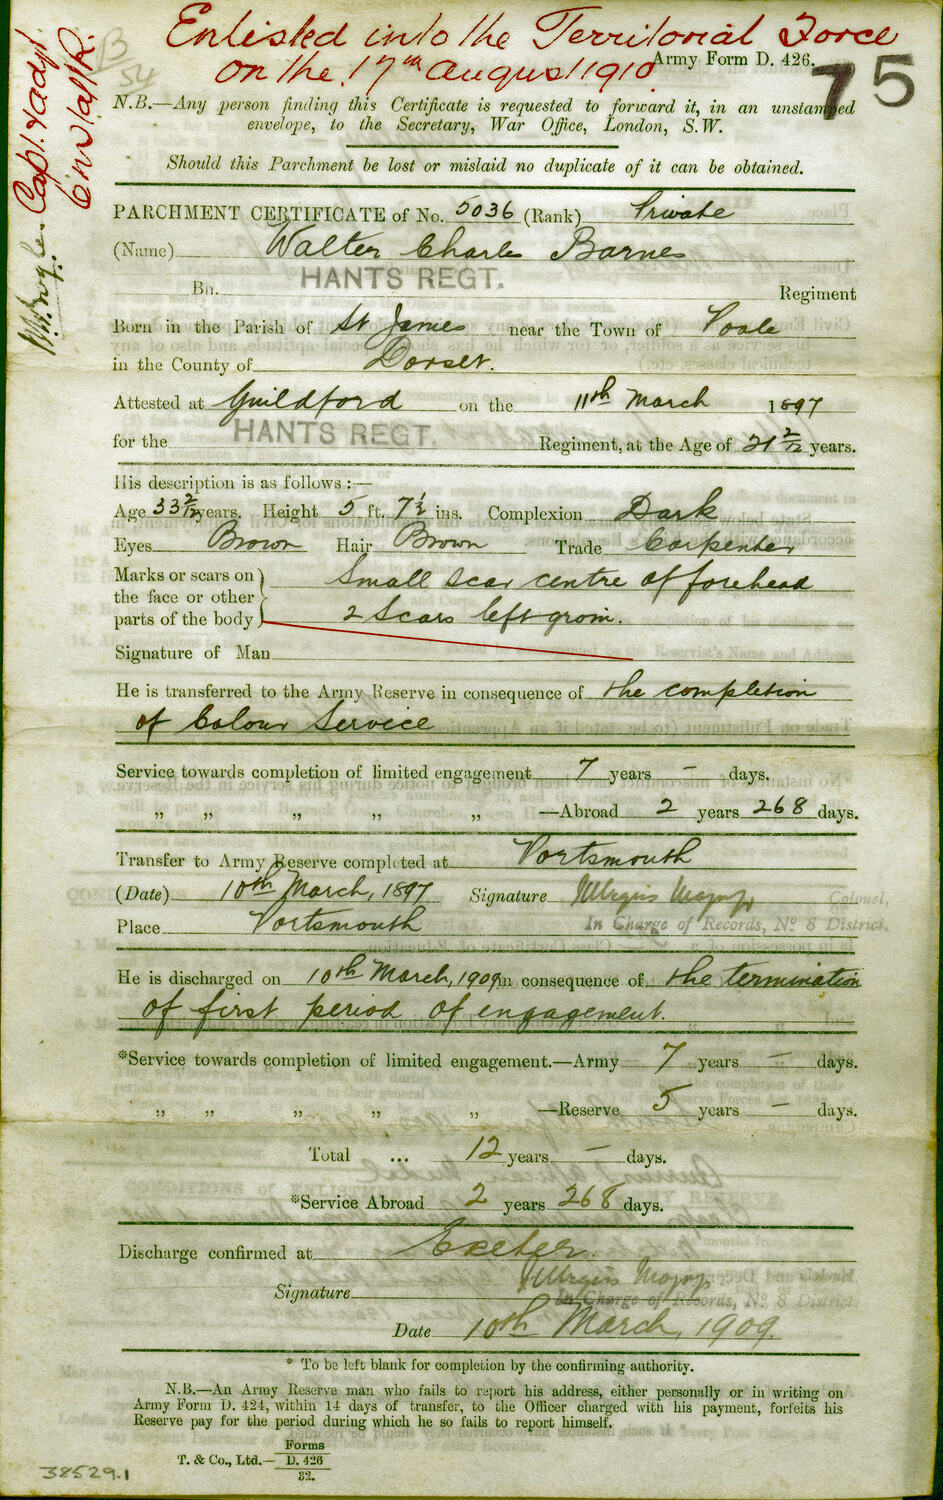 Enlisted into the Territorial Force
on the 17th August 1910
Army Form D. 426.
75
B/54
Capt &adjt
6th W/alt R.
N.B.—Any person finding this Certificate is requested to forward it, in an unstamped
envelope, to the Secretary, War Office, London, S.W.
Should this Parchment be lost or mislaid no duplicate of it can be obtained.
PARCHMENT CERTIFICATE of No. 5036 (Rank) Private
(Name) Walter Charles Barnes
HANTS REGT.
Bn. Regiment
Born in the Parish of St James near the Town of Poole
in the County of Dorset.
Attested at Guildford on the 11th March 1897
for the HANTS REGT. Regiment, at the Age of 21 2/12 years.
His description is as follows :—
Age 33 2/12 years. Height 5 ft. 7½ ins. Complexion Dark
Eyes Brown Hair Brown Trade Carpenter
Marks or scars on the face or other parts of the body } Small scar centre of forehead
2 Scars left groin.
Signature of Man
He is transferred to the Army Reserve in consequence of the completion
of Colour Service
Service towards completion of limited engagement 7 years – days.
„ „ „ „ „ —Abroad 2 years 268 days.
Transfer to Army Reserve completed at Portsmouth
(Date) 10th March, 1897 Signature Major Colonel,
Place Portsmouth In Charge of Records, No 8 District.
He is discharged on 10th March, 1909 in consequence of the termination
of first period of engagement.
*Service towards completion of limited engagement.—Army 7 years – days.
„ „ „ „ „ —Reserve 5 years – days.
Total ... 12 years – days.
*Service Abroad 2 years 268 days.
Discharge confirmed at Exeter.
Signature Major
In Charge of Records, No 8 District
Date 10th March, 1909.
* To be left blank for completion by the confirming authority.
N.B.—An Army Reserve man who fails to report his address, either personally or in writing on
Army Form D. 424, within 14 days of transfer, to the Officer charged with his payment, forfeits his
Reserve pay for the period during which he so fails to report himself.
T. & Co., Ltd.— Forms
D. 426
32.
38529.1